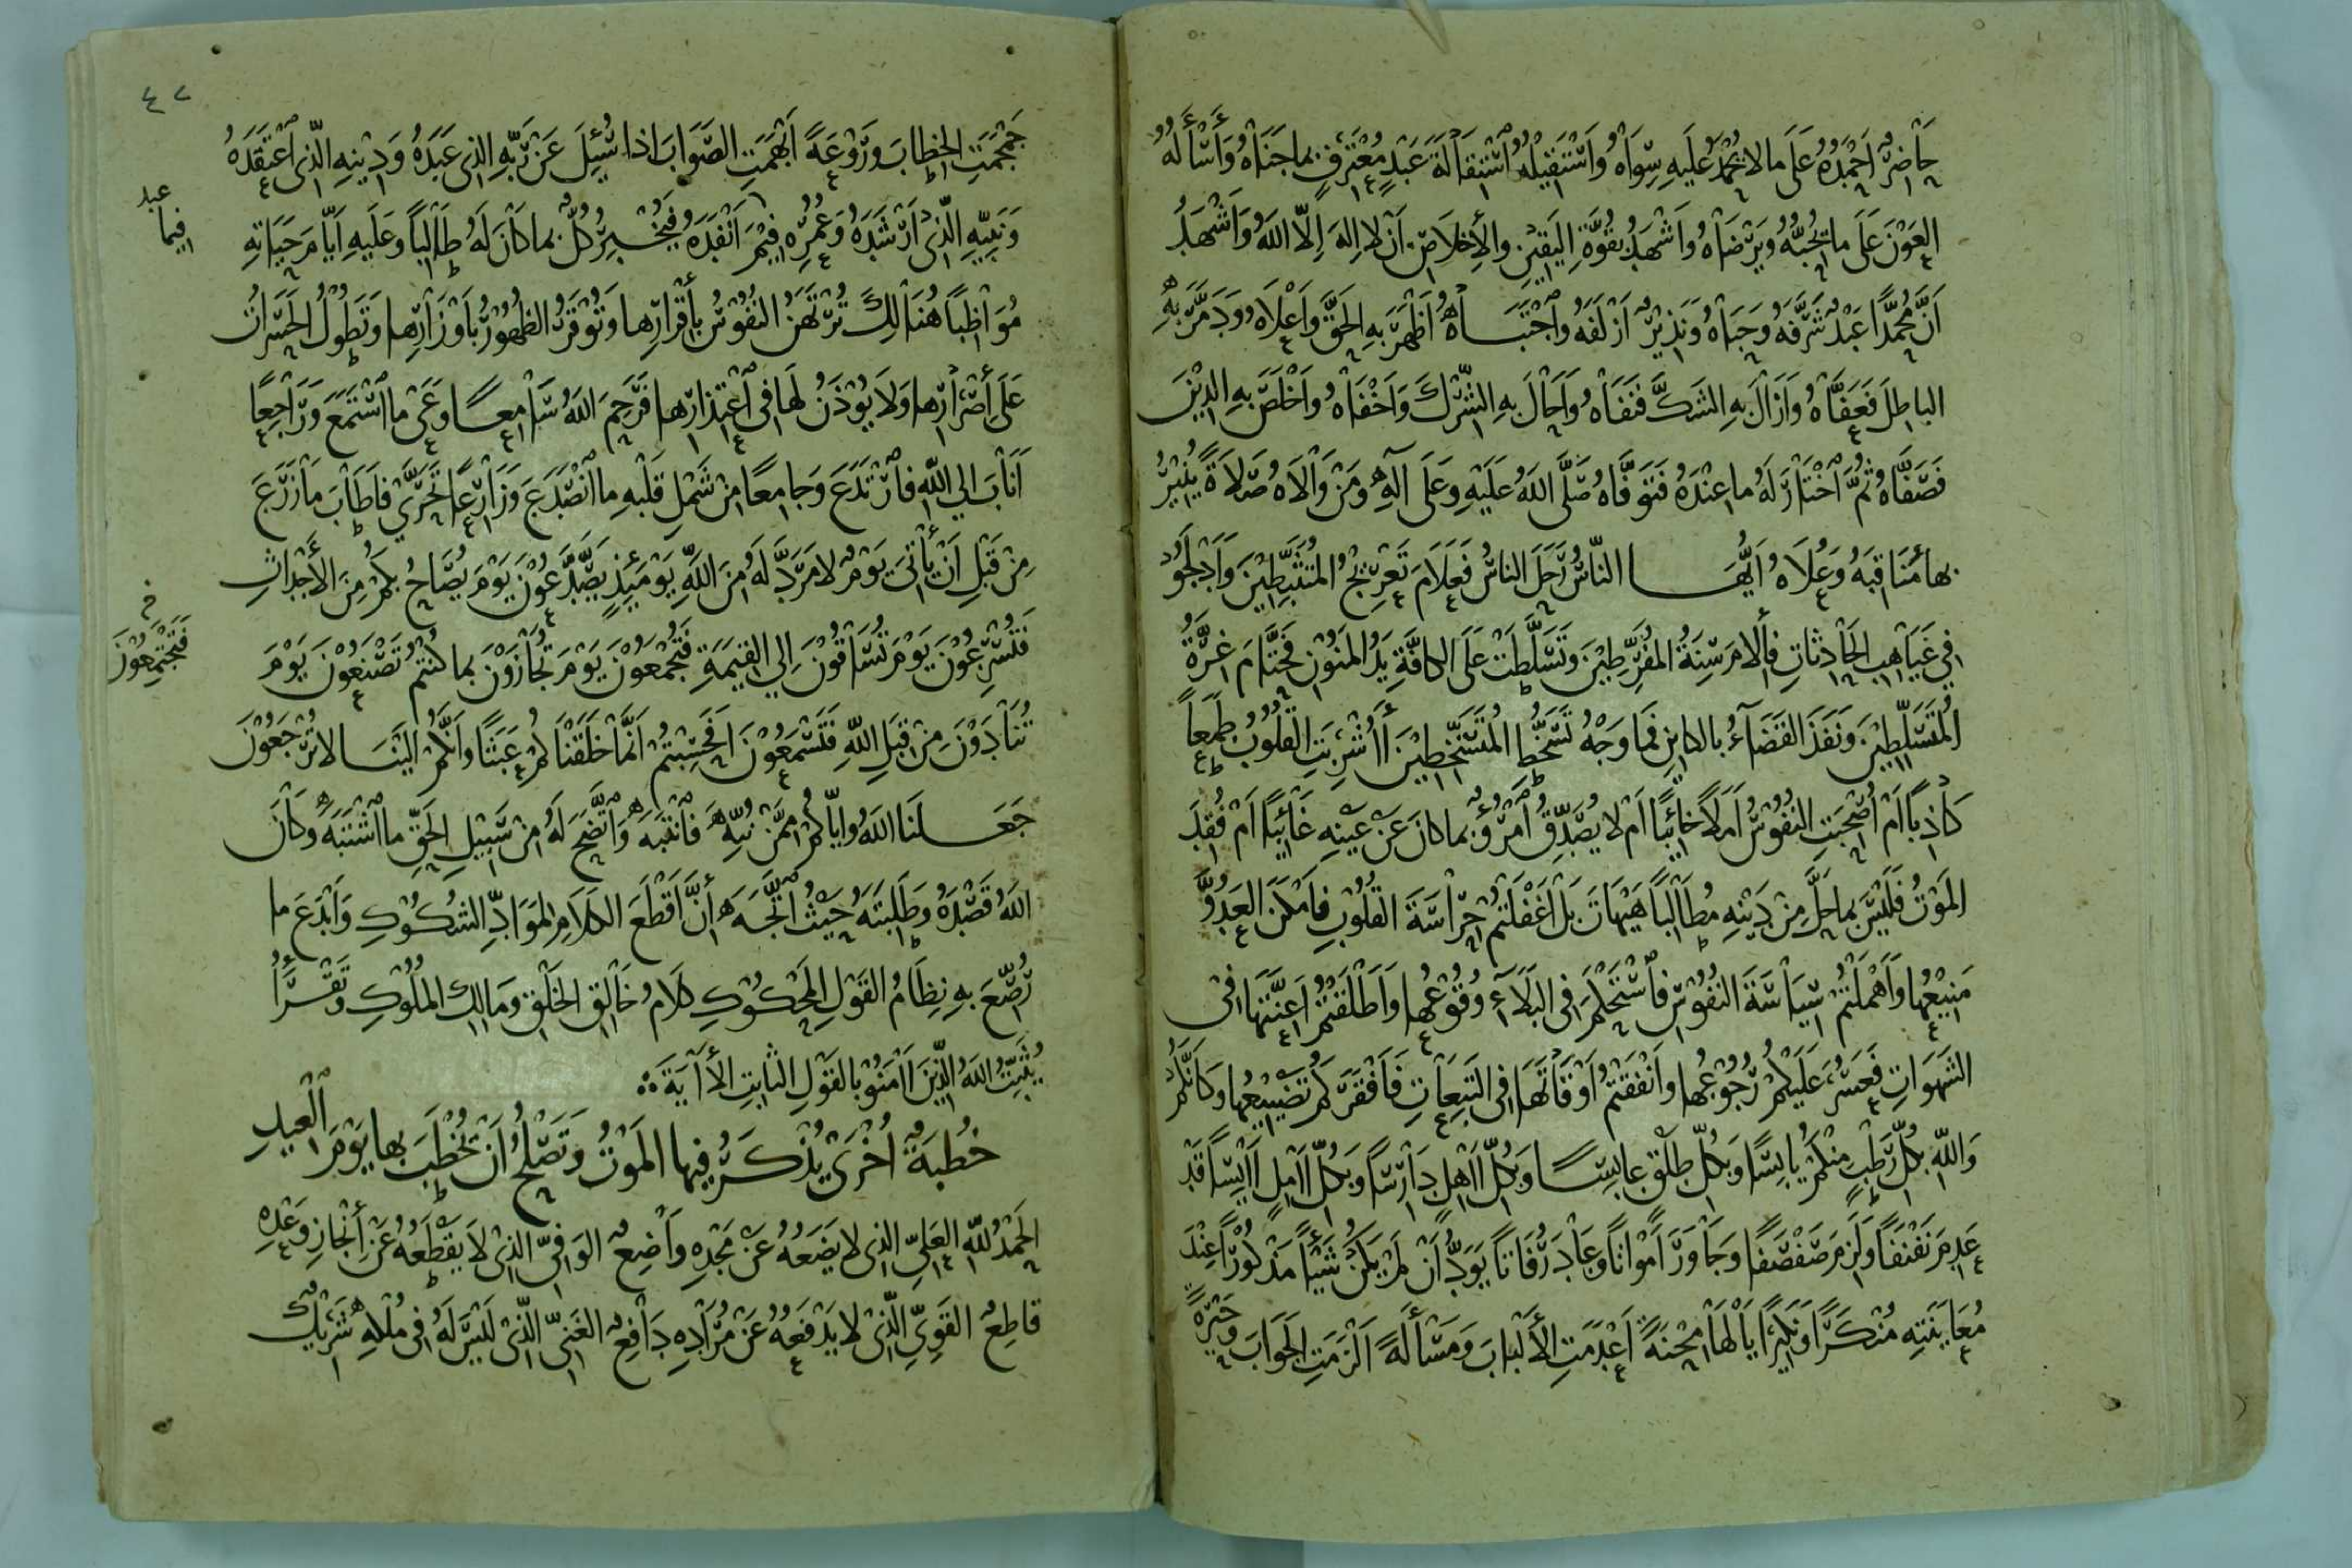 حَاضِرٌ اَحْمَدُهُ عَلَى مَالا يُحْمَدُ عَلَيهِ سِوَاهُ وَاَسْتَقِيْلُهُ اسْتِقَالَةَ عَبْدٍ مُعْتَرِفٍ بماجَنَاهُ وَأَسْأَلُهُ
العَوْنَ عَلَى ما يُحِبُّهُ ويَرْضَاهُ وَاَشْهَدُ بِقُوَّةِ اليَقِيْنِ والأِخلاَصِ اَنْ لاالهَ اِلاَّ اللهُ وَاَشْهَدُ
اَنَّ مُحَمَّدًا عَبْدٌ شَرَّفَهُ وَحَبَاهُ وَنَذِيرٌ اَزْلَفَهُ وَاجْتَبَاهُ اَظْهَرَ بِهِ الحَقَّ وَاَعْلاَهُ وَدَمَّرَ بِهِ
الباطِلَ فَعَفَّاهُ وَاَزَالَ بِهِ الشَكَّ فَنَفَاهُ وَاَحَالَ بِهِ الشِّرْكَ وَاَخْفَاهُ وَاَخْلَصَ بِهِ الدِّيْنَ
فَصَفَّاهُ ثُمَّ اخْتَارَ لَهُ ماعِنْدَهُ فَتَوَفَّاهُ صَلَّى اللهُ عَلَيْهِ وَعَلَى آلِهِ وَمَنْ وَالاَهُ صَلاَةً يُنِيْرُ
بها مَنَاقِبَهُ وَعُلاَهُ اَيُّهَا النَّاسُ رَحَلَ الناسُ فَعَلاَمَ تَعْرِيْجُ المُتَثَبِّطِيْنَ وَاَدْلَجُوْا
في غَيَاهِبِ الحَادِثَاتِ فأَلاَمَ سِنَةُ المُفَرِّطِيْنَ وَتَسَلَّطَتْ عَلَى الكافَّةِ يَدُ المَنُوْنِ فَحَتَّامَ غِرَّةُ
المُتَسَلِّطِيْنَ وَنَفَذَ القَضَآءُ بالكايِنِ فَما وَجْهُ تَسَخُّطِ المُتَسَخِّطِيْنَ أَأُشْرِبَتِ القُلُوْبُ طَمَعاً
كَاذِباً اَمْ اُصْحِبَتِ النُفُوْسُ اَمَلاً خَايِبًا اَمْ لا يُصَدِّقُ امْرُؤٌ بماكانَ عَنْ عَيْنِهِ غَائِبًا اَمْ فُقِدَ
المَوْتُ فَلَيْسَ بماحَلَّ مِنْ دَيْنِهِ مُطَالِباً هَيْهَاتَ بَلْ اَغْفَلْتُمْ حِرَاسَةَ القُلُوْبِ فامْكَنَ العَدُوَّ
مَنِيْعُها وَاَهْمَلْتُمْ سِيَاسَةَ النُفُوْسِ فَاسْتَحْكَمَ في البَلاَءِ وُقُوْعُها وَاَطْلَقْتُمْ اَعِنَّتَهَا في
الشَهَوَاتِ فَعَسُرَ عَلَيْكُمْ رُجُوْعُها وانْفَقْتُمْ اَوْقَاتَهَا في التَبِعَاتِ فَاَفْقَرَكُمْ تَضْيِيْعُها وَكَانَكُمْ
وَاللهِ بِكُلِّ رَطْبٍ مِنْكُمْ يابِسًا وَبِكُلِّ طَلْقٍ عابِسًا وَبِكُلِّ اَاهِلٍ دَارِسًا وَبِكُلِّ اَامِلٍ اَايِسًا قَدْ
عَدِمَ نَفْنَفًا وَلَزِمَ صَفْصَفًا وَجَاوَرَ اَمْوَاتاً وَعَادَ رُفَاتاً يَوَدُّ اَنْ لَمْ يَكُنْ شَيْأً مَذْكُوْرًا عِنْدَ
مُعَايَنَتِهِ مُنْكَرًا وَنَكِيْرًا يَا لَهَا مِحْنَةً اَعْدَمَتِ الأَلْبَابَ وَمَسْأَلَةً اَلْزَمَتِ الجَوَابَ وَحَيْرَةً
٤٧
جَمْجَمَتِ الخِطابَ ورَوْعَةً اَبْهَمَتِ الصَّوَابَ اذا سُئِلَ عَنْ رَبِّهِ الذي عَبَدَهُ وَدِيْنِهِ الَّذي اعْتَقَدَهُ
وَنَبِيِّهِ الَّذِيْ اَرْشَدَهُ وَعُمُرِهِ فِيْمَ اَنْفَدَهُ فَيُخْبِرُ كُلٌّ بماكانَ لَهُ طَالِباً وَعَلَيهِ اَيَّامَ حَيَاتِهِ
عبد
فيما
مُوَاظِباً هُنَالِكَ تُرْتَهَنُ النُفُوْسُ بأَقْرَارِها وَتُوْقَرُ الظُهُوْرُ بأَوْزَارِها وَتَطُوْلُ الحَسَرَاتُ
عَلَى أَصْرَارِها وَلاَ يُوْذَنُ لَهَا في اعْتِذَارِها فَرَحِمَ اللهُ سَامِعًا وَعَى مااسْتَمَعَ وَرَاجِعًا
اَنَابَ الي اللهِ فارْتَدَعَ وَجامِعًا مِنْ شَمْلِ قَلْبِهِ ماانْصَدَعَ وَزَارِعًا تَحَرَّي فاَطَابَ مازَرَعَ
مِنْ قَبْلِ اَنْ يأْتِيَ يَوْمٌ لامَرَدَّ لَهُ مِنَ اللهِ يَوْمَئِذٍ يَصَّدَّعُوْنَ يَوْمَ يُصَاحُ بِكُمْ مِنَ الأَجْدَاثِ
فَتُسْرِعُوْنَ يَوْمَ تُسَاقُوْنَ اِلي القِيمَةِ فَتُجْمَعُوْنَ يَوْمَ تُجَازَوْنَ بماكُنْتُمْ تَصْنَعُوْنَ يَوْمَ
خ
فَتَجْتَمِعُوْنَ
تُنَادَوْنَ مِنْ قِبَلِ اللهِ فَتَسْمَعُوْنَ اَفَحَسِبْتُمْ اَنَّمَا خَلَقْنَاكُمْ عَبَثًا وَاَنَّكُمْ الَيْنَا لاتُرْجَعُوْنَ
جَعَلَنَا اللهُ وَايَّاكُمْ مِمَّنْ نُبِّهَ فَانْتَبَهَ وَاتَّضَحَ لَهُ مِنْ سَبِيْلِ الحَقِّ مااشْتَبَهَ وَكَانَ
اللهُ قَصْدَهُ وَطَلِبَتَهُ حَيْثُ اتَّجَهَ أنَّ اَقْطَعَ الكَلاَمِ لِمَوَادِّ الشُكُوْكِ وَاَبْدَعَ ما
رُصِّعَ بِهِ نِظَامُ القَوْلِ المَحْكُوْكِ كَلاَمُ خَالِقِ الخَلْقِ وَمَالِكِ المُلُوْكِ وَتَقْرَأُ
يُثَبِّتُ اللهُ الَّذِيْنَ اَامَنُوْا بالقَوْلِ الثابِتِ الأَايَةَ ؞
خُطبَةٌ اُخْرَى يُذْكَرُ فِيها المَوْتُ وَتَصْلُحُ اَنْ يُخْطَبَ بها يَوْمَ العِيدِ
الحَمْدُ للهِ العَلِيِّ الذي لا يَضَعُهُ عَنْ مَجْدِهِ وَاضِعٌ الوَافِيِّ الذِيْ لاَ يَقْطَعُهُ عَنِ أنْجَازِ وَعْدِهِ
قاطِعٌ القَوِيِّ الَّذِيْ لا يَدْفَعُهُ عَنْ مُرَادِهِ دَافِعٌ الغَنِيِّ الَّذِيْ لَيْسَ لَهُ في مُلْكِهِ شَرِيْكٌ